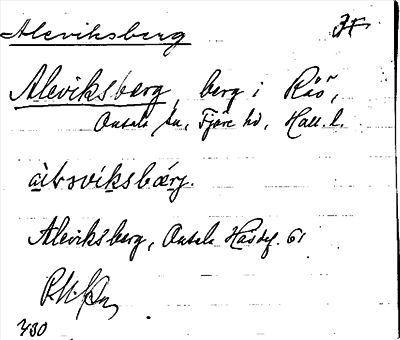 Aleviksberg
Aleviksberg berg i Råö,
Onsala sn, Fjäre hd, Hall. l.
àlƨvíksbærj.
Aleviksberg, Onsala Hasdf. 61
480